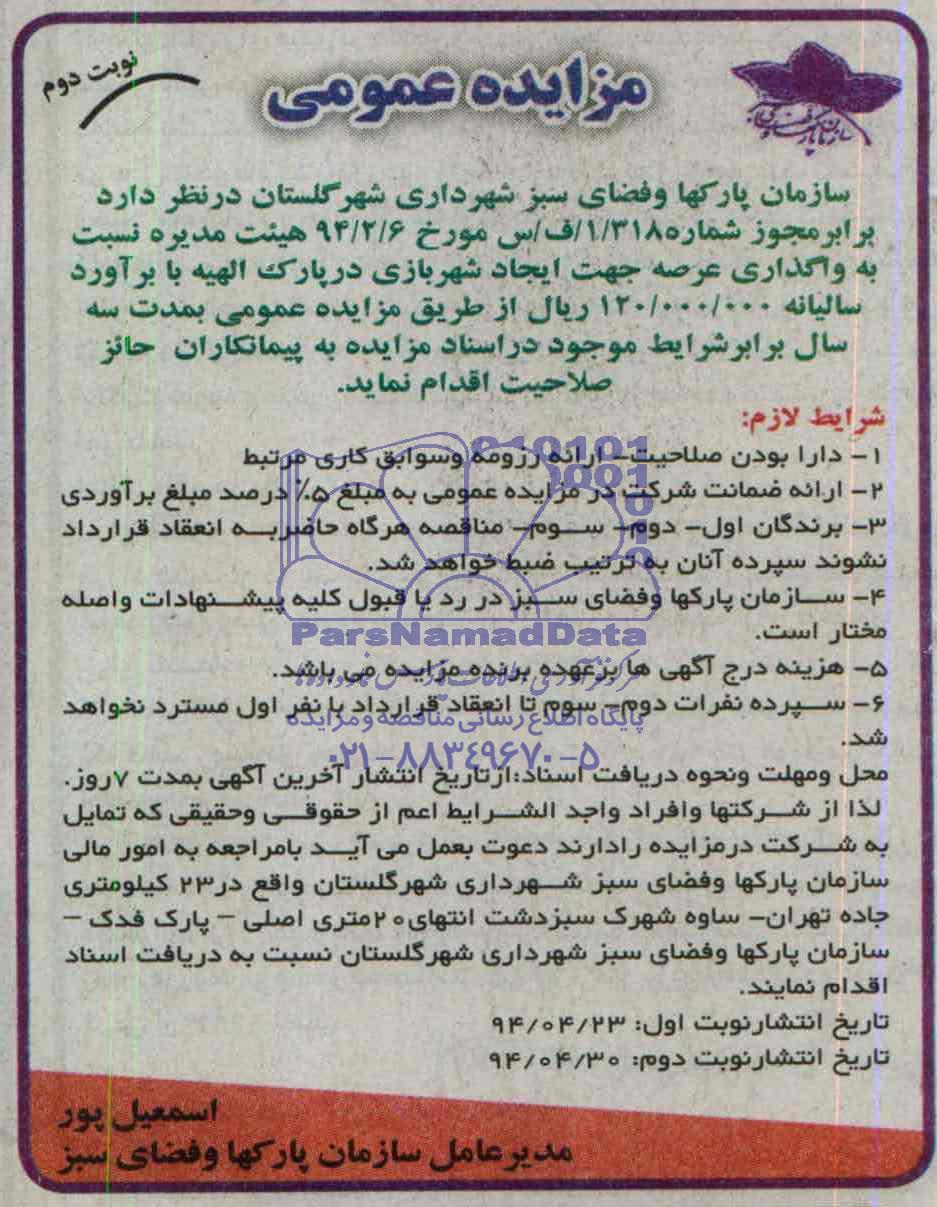 نوبت دوم
مزایده عمومی
سازمان پارکها وفضای سبز شهرداری شهرگلستان درنظر دارد
برابرمجوز شماره۱/۳۱۸/ف/س مورخ ۹۴/۲/۶ هیئت مدیره نسبت
به واگذاری عرصه جهت ایجاد شهربازی درپارک الهیه با برآورد
سالیانه ۱۲۰/۰۰۰/۰۰۰ ریال از طریق مزایده عمومی بمدت سه
سال برابرشرایط موجود دراسناد مزایده به پیمانکاران حائز
صلاحیت اقدام نماید.
شرایط لازم:
۱- دارا بودن صلاحیت- ارائه رزومه وسوابق کاری مرتبط
۲- ارائه ضمانت شرکت در مزایده عمومی به مبلغ ۵٪ درصد مبلغ برآوردی
۳- برندگان اول- دوم- سوم- مناقصه هرگاه حاضربه انعقاد قرارداد
نشوند سپرده آنان به ترتیب ضبط خواهد شد.
۴- سازمان پارکها وفضای سبز در رد یا قبول کلیه پیشنهادات واصله
مختار است.
۵- هزینه درج آگهی ها برعهده برنده مزایده می باشد.
۶- سپرده نفرات دوم- سوم تا انعقاد قرارداد با نفر اول مسترد نخواهد
شد.
محل ومهلت ونحوه دریافت اسناد:ازتاریخ انتشار آخرین آگهی بمدت ۷روز.
لذا از شرکتها وافراد واجد الشرایط اعم از حقوقی وحقیقی که تمایل
به شرکت درمزایده رادارند دعوت بعمل می آید بامراجعه به امور مالی
سازمان پارکها وفضای سبز شهرداری شهرگلستان واقع در۲۳ کیلومتری
جاده تهران- ساوه شهرک سبزدشت انتهای۲۰متری اصلی – پارک فدک –
سازمان پارکها وفضای سبز شهرداری شهرگلستان نسبت به دریافت اسناد
اقدام نمایند.
تاریخ انتشارنوبت اول: ۹۴/۰۴/۲۳
تاریخ انتشارنوبت دوم: ۹۴/۰۴/۳۰
اسمعیل پور
مدیرعامل سازمان پارکها وفضای سبز
ParsNamadData
پایگاه اطلاع رسانی مناقصه ومزایده
۰۲۱-۸۸۳۴۹۶۷۰-۵